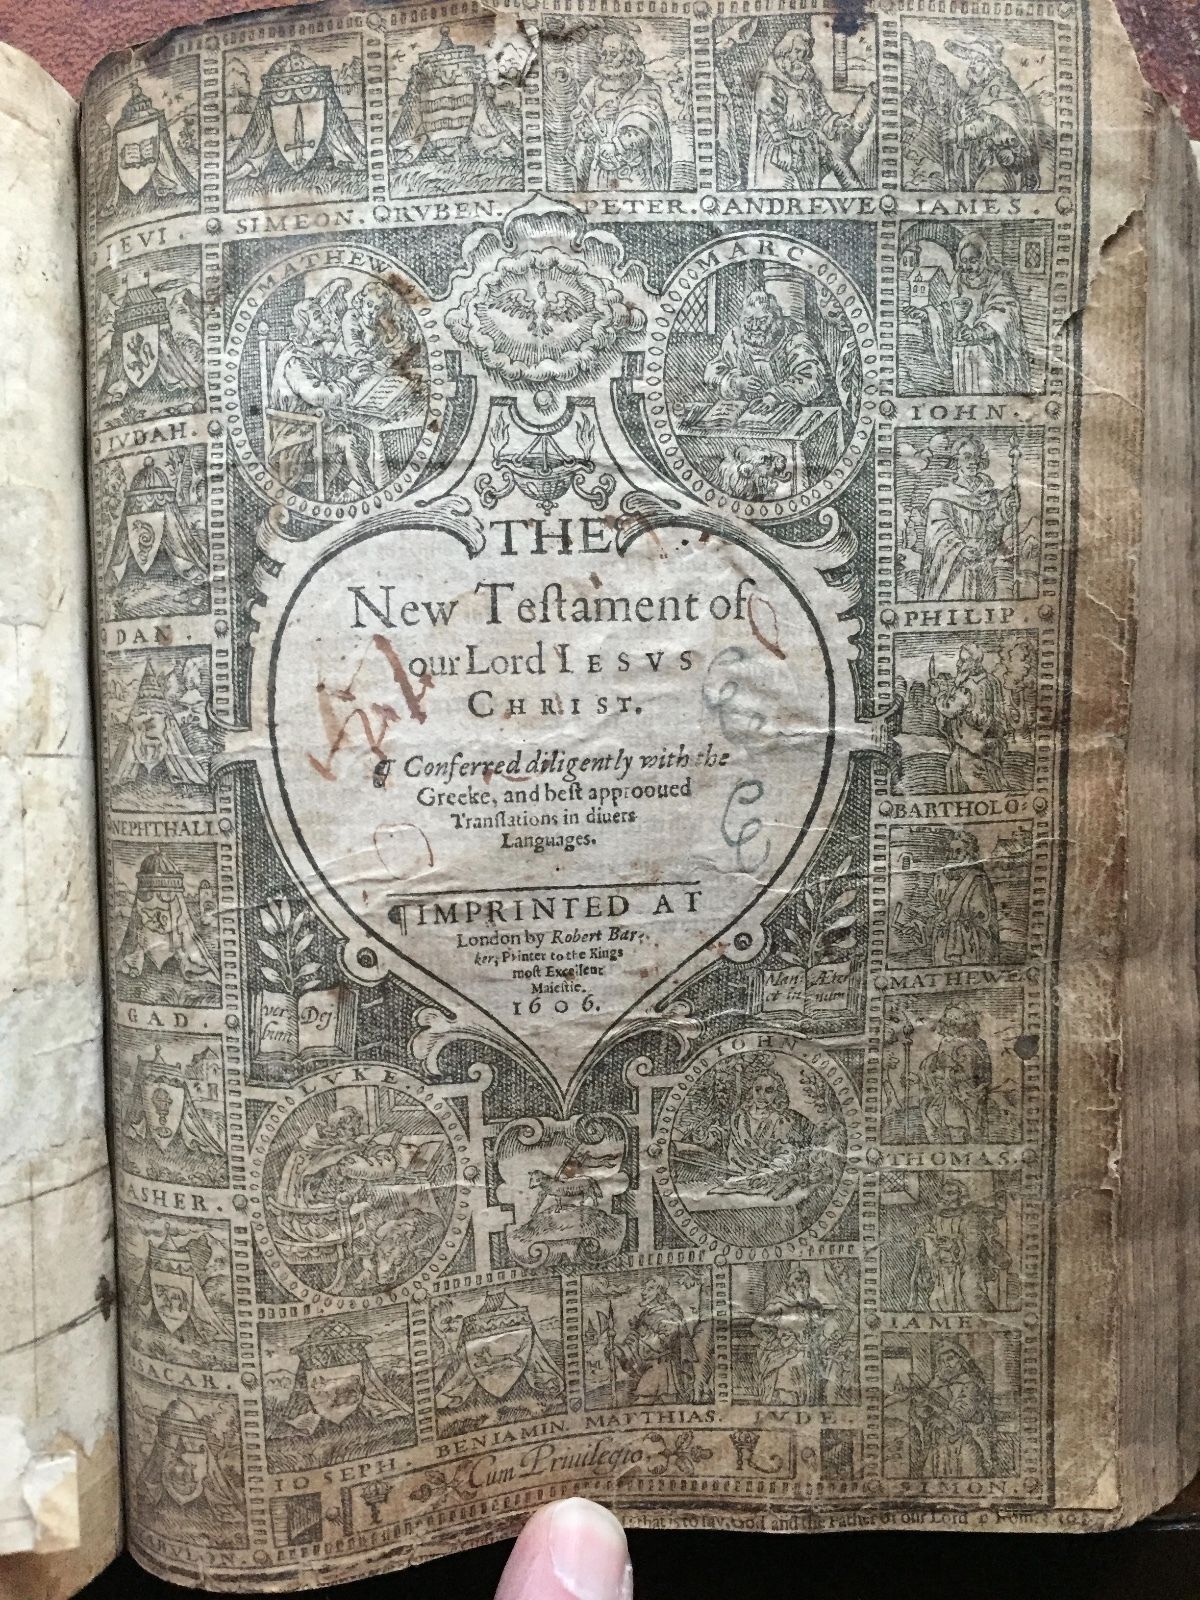 SIMEON.
RVBEN.
PETER.
ANDREWE
IAMES.
LEVI.
MATHEW
MARC.
IVDAH.
IOHN.
THE
New Teſtament of
our Lord IESVS
CHRIST.
¶ Conferred diligently with the
Greeke, and beſt approoued
Tranſlations in diuers
Languages.
¶IMPRINTED AT
London by Robert Bar-
ker, Printer to the Kings
moſt Excellent
Maieſtie.
1606.
DAN.
PHILIP.
NEPHTHALI
BARTHOLO:
GAD.
verbum Dej
Manet in Æternum
MATHEWE
LVKE.
IOHN.
ASHER.
THOMAS.
ISSACAR.
IAMES
IOSEPH.
BENIAMIN.
MATTHIAS.
IVDE.
SIMON.
ZABVLON.
Cum Priuilegio.
that is to ſay, God and the Father of our Lord